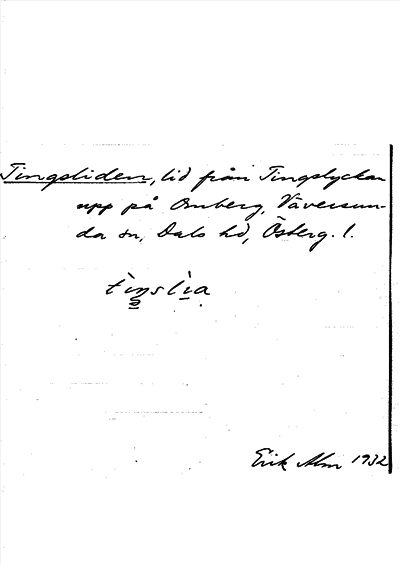 Tingsliden, lid från Tingslyckan
upp på Omberg, Väversun-
da sn, Dals hd, Österg. l.
tìŋslìa
Erik Alm 1932